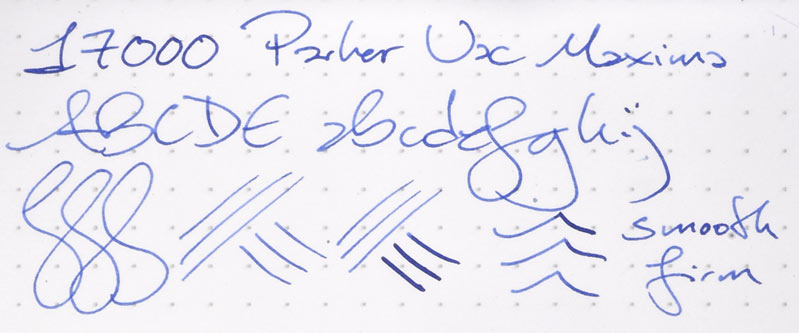 17000 Parker Vac Maxima
ABCDE abcdefghij
smooth
firm